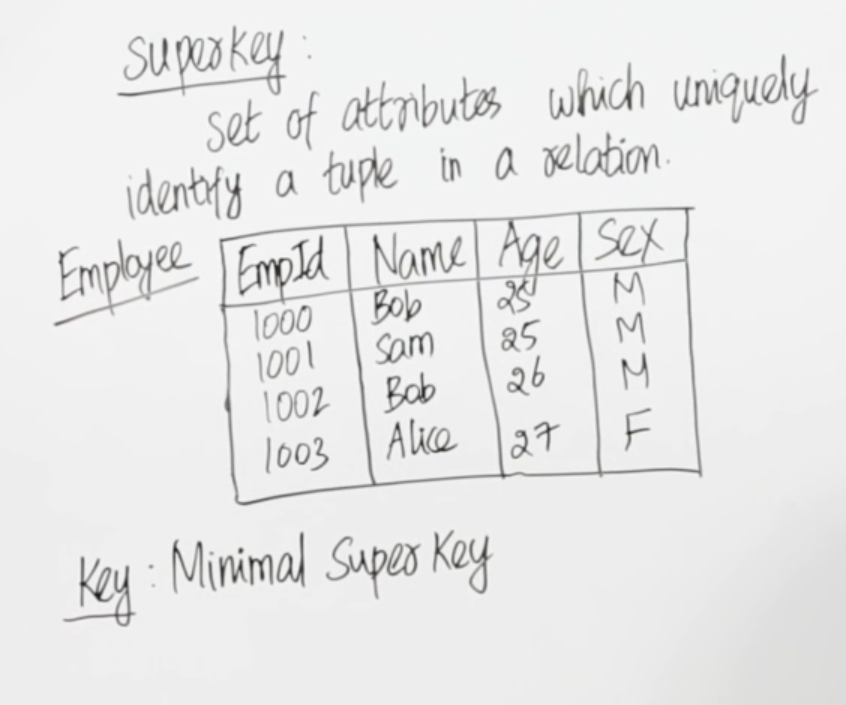 Superkey :
set of attributes which uniquely
identify a tuple in a relation.
Employee
EmpId Name Age Sex
1000 Bob 25 M
1001 Sam 25 M
1002 Bob 26 M
1003 Alice 27 F
Key : Minimal Super Key